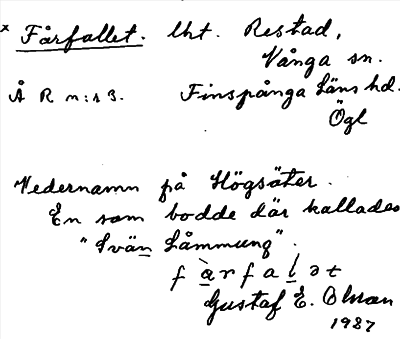 x Fårfallet. lht. Restad,
Vånga sn.
Å R n:s 3. Finspånga läns hd.
Ögl
Vedernamn på Högsäter.
En som bodde där kallades
"Svän Låmmung".
f à r f a l ə t
Gustaf E. Olsson
1987